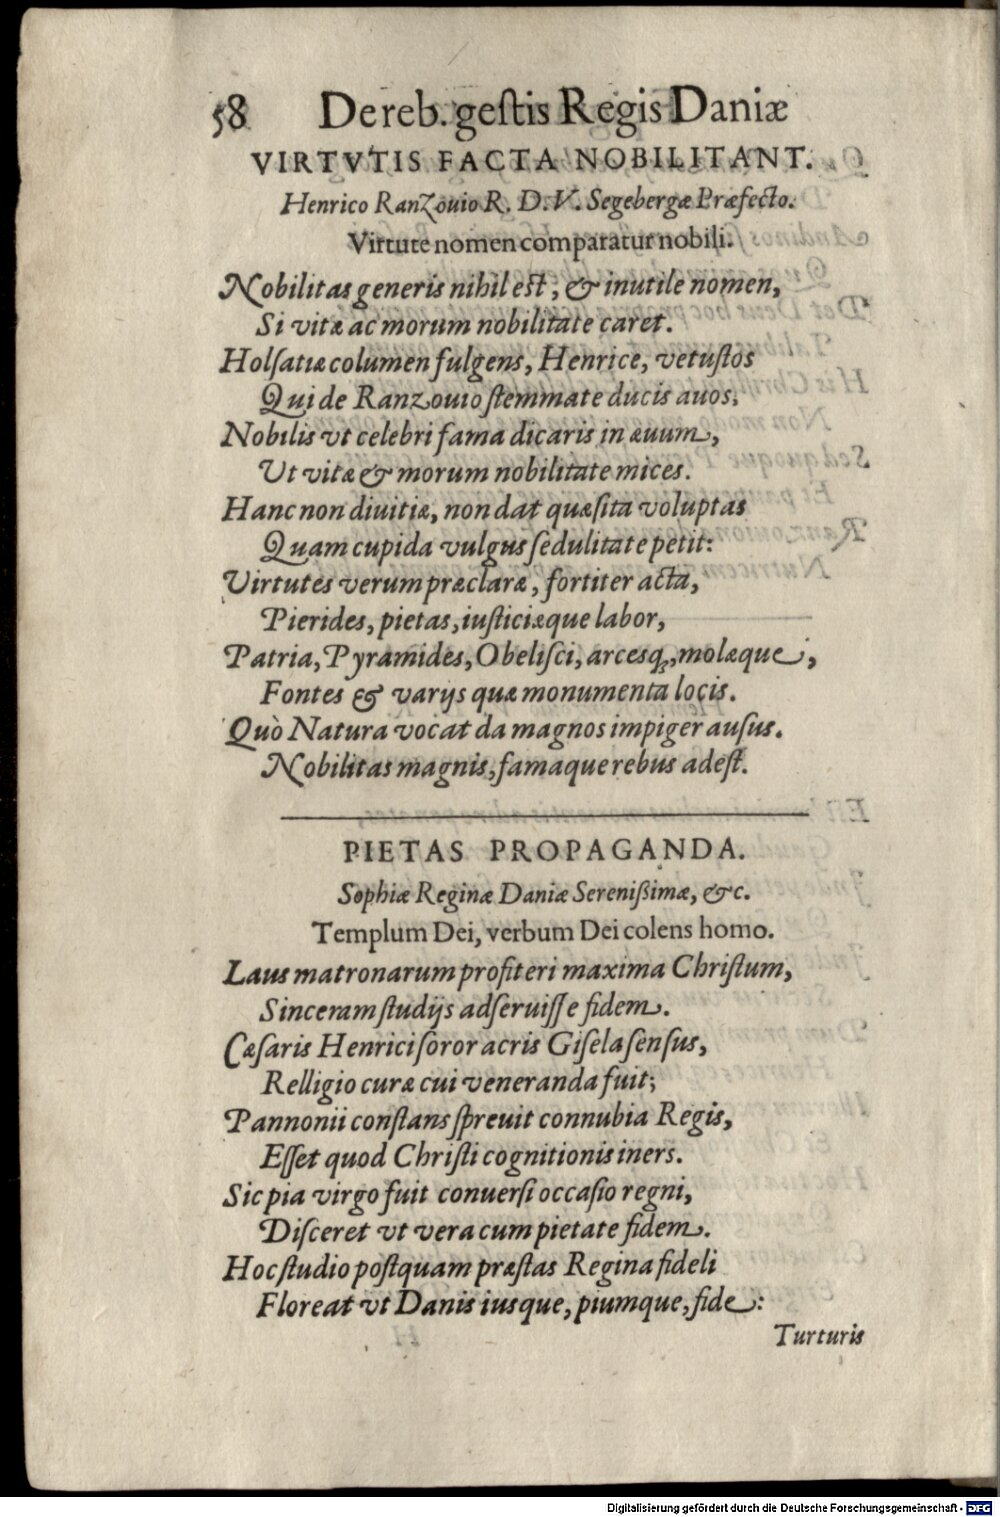 58 De reb. gestis Regis Daniæ
VIRTVTIS FACTA NOBILITANT.
Henrico Ranzouio R. D. V. Segebergæ Præfecto.
Virtute nomen comparatur nobili.
Nobilitas generis nihil est, & inutile nomen,
Si vitæ ac morum nobilitate caret.
Holſatiæ columen fulgens, Henrice, vetuſtos
Qui de Ranzouio ſtemmate ducis auos,
Nobilis vt celebri fama dicaris in æuum,
Ut vitæ & morum nobilitate mices.
Hanc non diuitiæ, non dat quæſita voluptas
Quam cupida vulgus ſedulitate petit:
Virtutes verum præclaræ, fortiter acta,
Pierides, pietas, iuſticiæque labor,
Patria, Pyramides, Obeliſci, arcesq́;, molæque,
Fontes & varijs quæ monumenta locis.
Quò Natura vocat da magnos impiger auſus.
Nobilitas magnis, famaque rebus adeſt.
PIETAS PROPAGANDA.
Sophiæ Reginæ Daniæ Sereniſſimæ, &c.
Templum Dei, verbum Dei colens homo.
Laus matronarum profiteri maxima Chriſtum,
Sinceram ſtudijs adſeruiſſe fidem.
Cæſaris Henrici ſoror acris Giſela ſenſus,
Relligio curæ cui veneranda fuit;
Pannonii conſtans ſpreuit connubia Regis,
Eſſet quod Chriſti cognitionis iners.
Sic pia virgo fuit conuerſi occaſio regni,
Diſceret vt vera cum pietate fidem.
Hoc ſtudio poſtquam præſtas Regina fideli
Floreat vt Danis iusque, piumque, fide:
Turturis
Digitalisierung gefördert durch die Deutsche Forschungsgemeinschaft - DFG